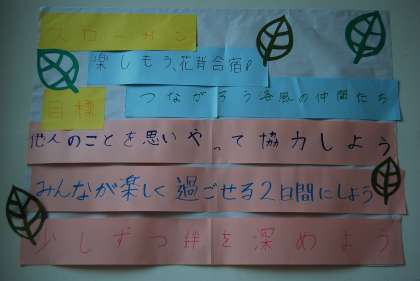 スローガン
楽しもう、花背合宿♪
つながろう洛風の仲間たち
目標
他人のことを思いやって協力しよう
みんなが楽しく過ごせる2日間にしよう
少しずつ絆を深めよう